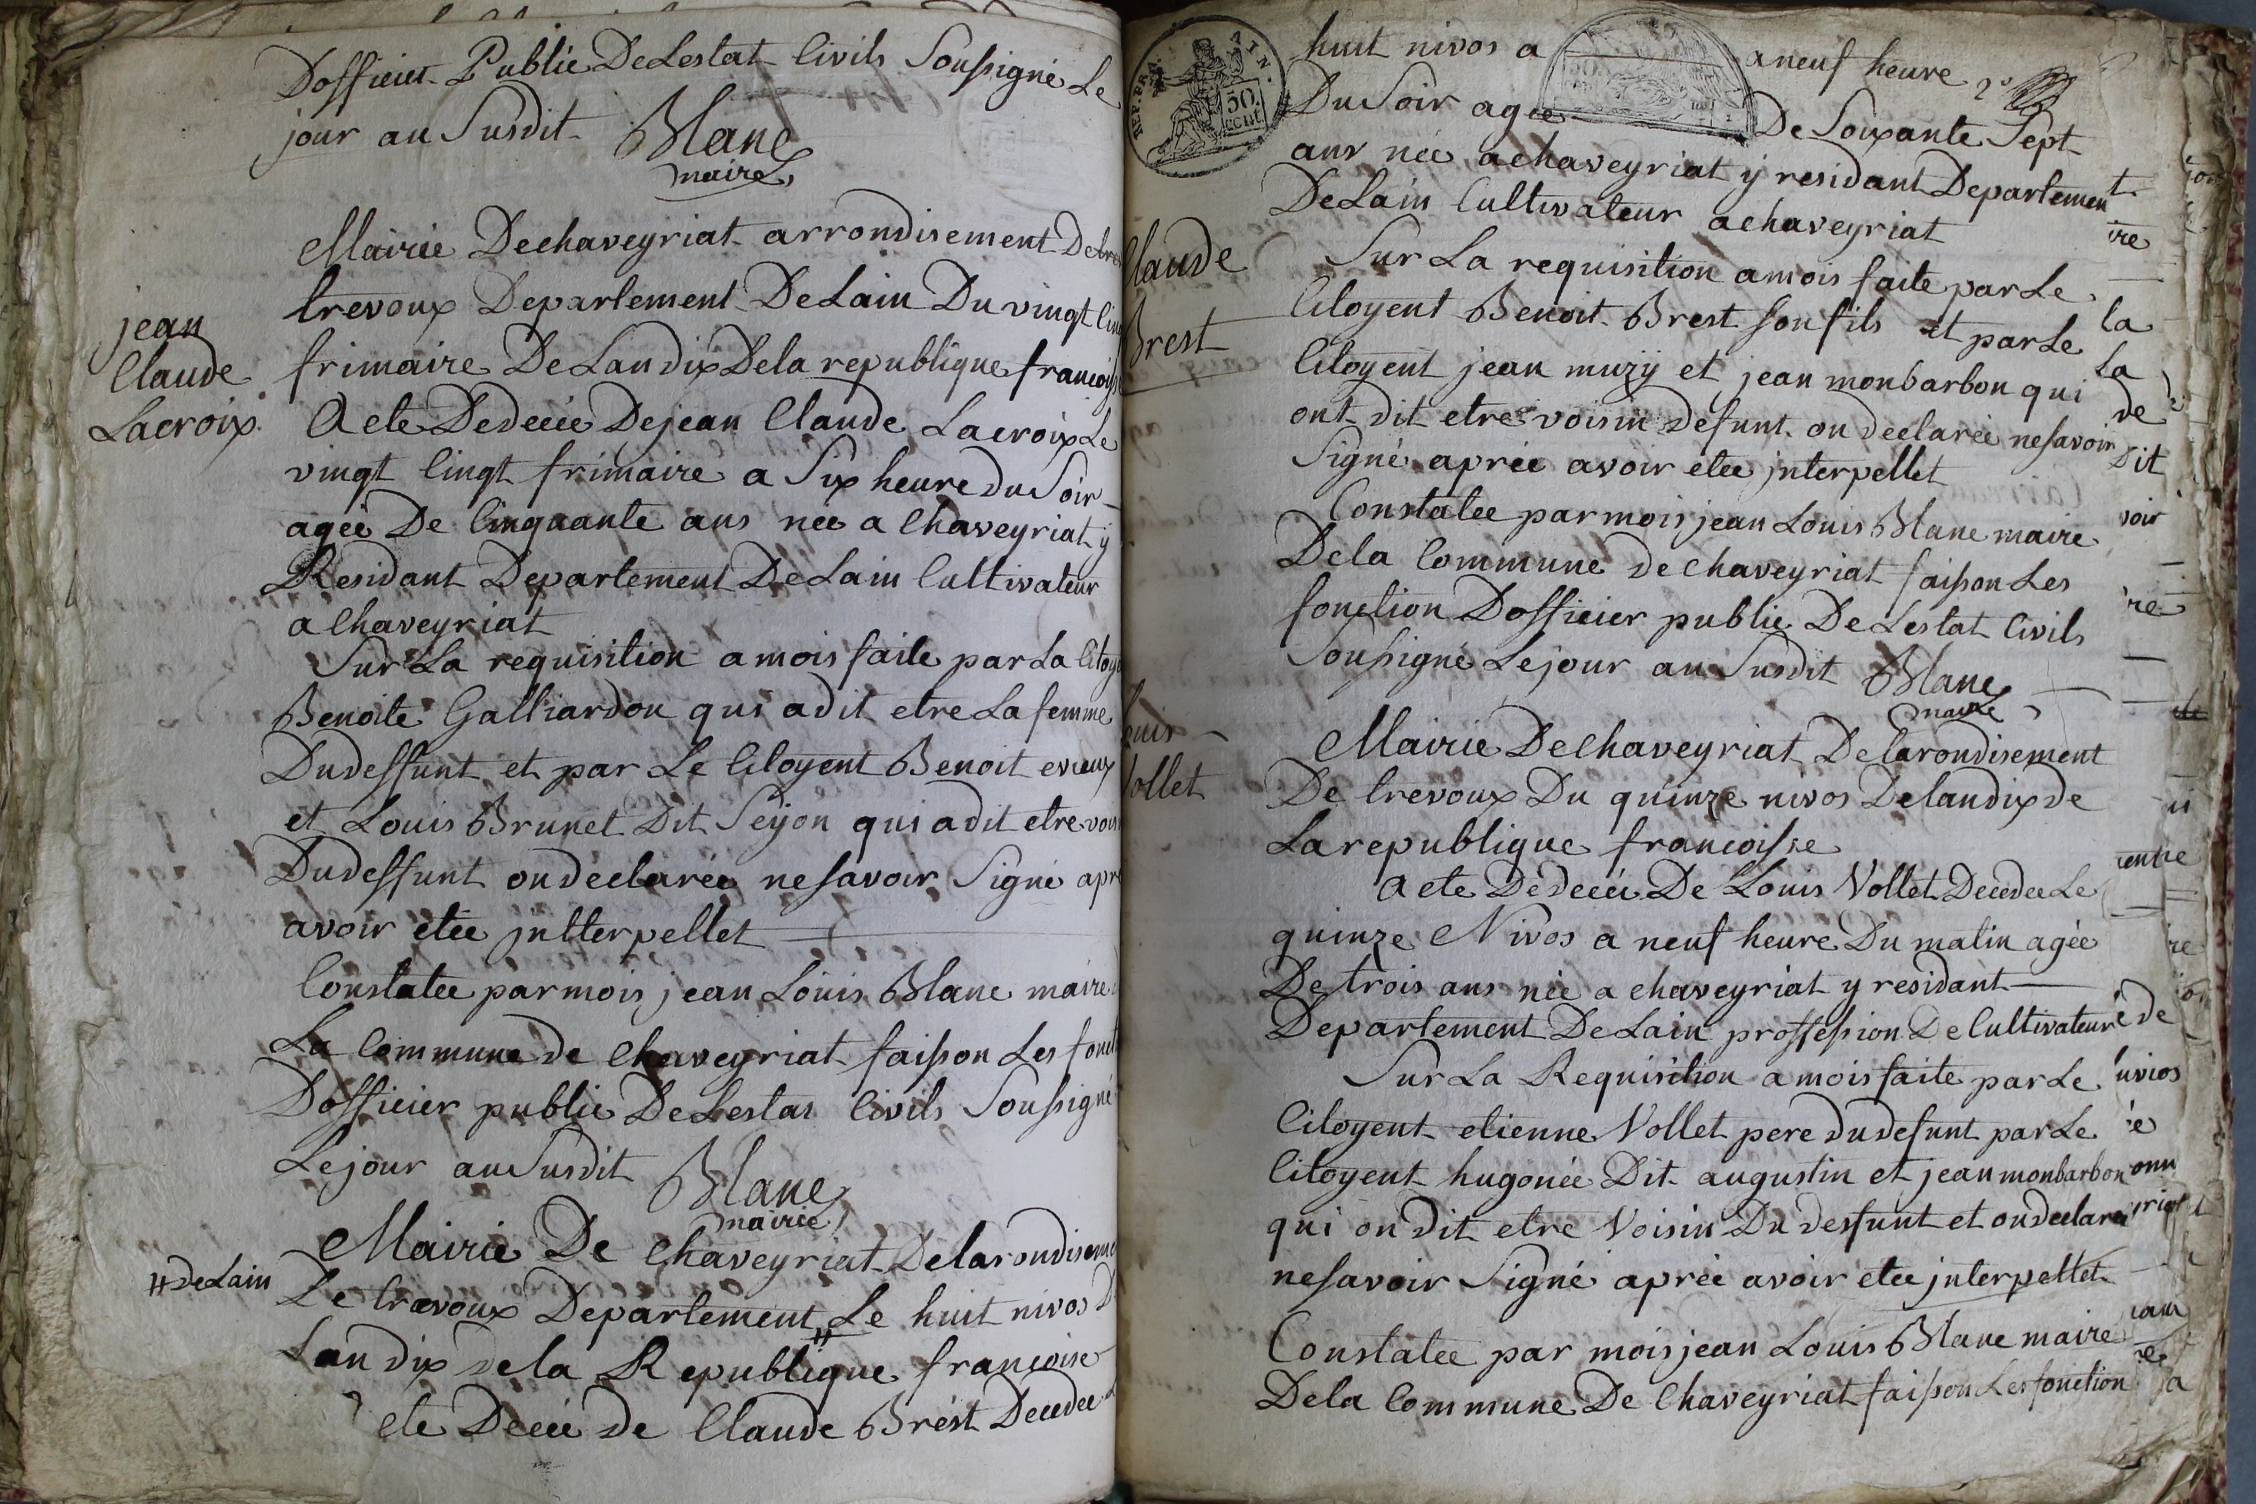 Dofficier Public De Lestat Civils Soussigné Le
jour au Susdit Blanc
maire
Mairie De chaveyriat arrondisement De
trevoux Departement De Lain Du vingt Cinq
jean
Claude
Lacroix
frimaire De Lan dix De la republique francoisse
Acte De decée De jean Claude Lacroix Le
vingt Cingt frimaire a Six heure Du Soir
agée De Cinquante ans née a Chaveyriat y
Residant Departement De Lain Cultivateur
a Chaveyriat
Sur La requisition a mois faite par La
Benoite Galliardon qui a dit etre La femme
Du deffunt et par Le Citoyent Benoit evieux
et Louis Brunet Dit Seyon qui a dit etre
Du deffunt on déclarée ne savoir Signé
avoir etée jntterpellet
Constatée par mois jean Louis Blanc maire
La Commune de Chaveyriat faisson Les
Dofficier public De Lestat Civils Soussigné
Le jour au Susdit Blanc
mairie
Mairie De Chaveyriat De larondiseme
# De Lain
Le trevoux Departement # Le huit nivos D
Lan dix de la Republique francoise
cte Decée de Claude Brest Decedée
REP. FRA. 50. cent
huit nivos a a neuf heure 2e
Du Soir agée De Soixante Sept
ans née a chaveyriat y residant Departement
De Lain Cultivateur a chaveyriat
Claude
Brest
Sur La requisition a mois faite par Le
Citoyent Benoit Brest son fils et par Le
Citoyent jean muzy et jean monbarbon qui
ont dit etre voisin defunt on declarée ne savoir
Signé aprée avoir etée jnterpellet
Constatée par mois jean Louis Blanc maire
De la Commune de chaveyriat faisson Les
fonction Dofficier public De Lestat Civils
Soussigné Le jour au Susdit Blanc
maire
Louis
Vollet
Mairie De Chaveyriat De larondisement
De trevoux Du quinze nivos De lan dix de
La republique francoisse
Acte De decée De Louis Vollet Decedée Le
quinze Nivos a neuf heure Du matin agée
De trois ans née a chaveyriat y residant
Departement De Lain proffession De Cultivateur
Sur La Requisition a mois faite par Le
Citoyent etienne Vollet pere du defunt par Le
Citoyent hugonée Dit augustin et jean monbarbon
qui on dit etre Voisin Du desfunt et on declarée
ne savoir Signé aprée avoir etée jnterpellet
Constatée par mois jean Louis Blanc maire
De la Commune De Chaveyriat faisson Les fonction